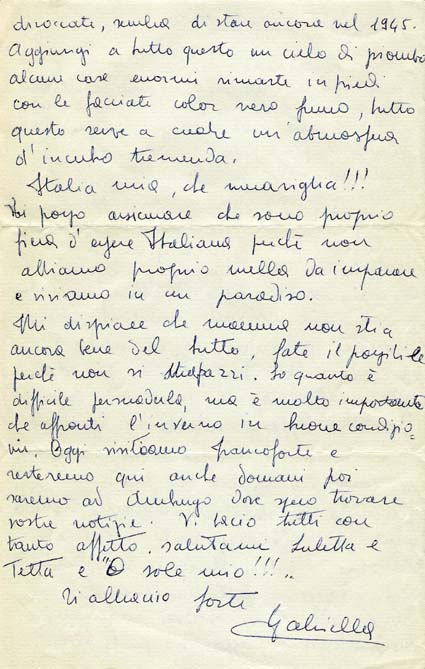 diroccate, sembra di stare ancora nel 1945.
Aggiungi a tutto questo un cielo di piombo
alcune case enormi rimaste in piedi
con le facciate color nero fumo, tutto
questo serve a creare un'atmosfera
d'incubo tremenda.
Italia mia, che meraviglia!!!
Vi posso assicurare che sono proprio
fiera d'essere Italiana perchè non
abbiamo proprio nulla da imparare
e viviamo in un paradiso.
Mi dispiace che mamma non stia
ancora bene del tutto, fate il possibile
perchè non si strapazzi. So quanto è
difficile persuaderla, ma è molto importante
che affronti l'inverno in buone condizio-
ni. Oggi visitiamo Francoforte e
resteremo qui anche domani poi
saremo ad Amburgo dove spero trovare
vostre notizie. Vi bacio tutti con
tanto affetto, salutami Luletta e
Tetta e "O sole mio!!!..
Vi abbraccio forte
Gabriella